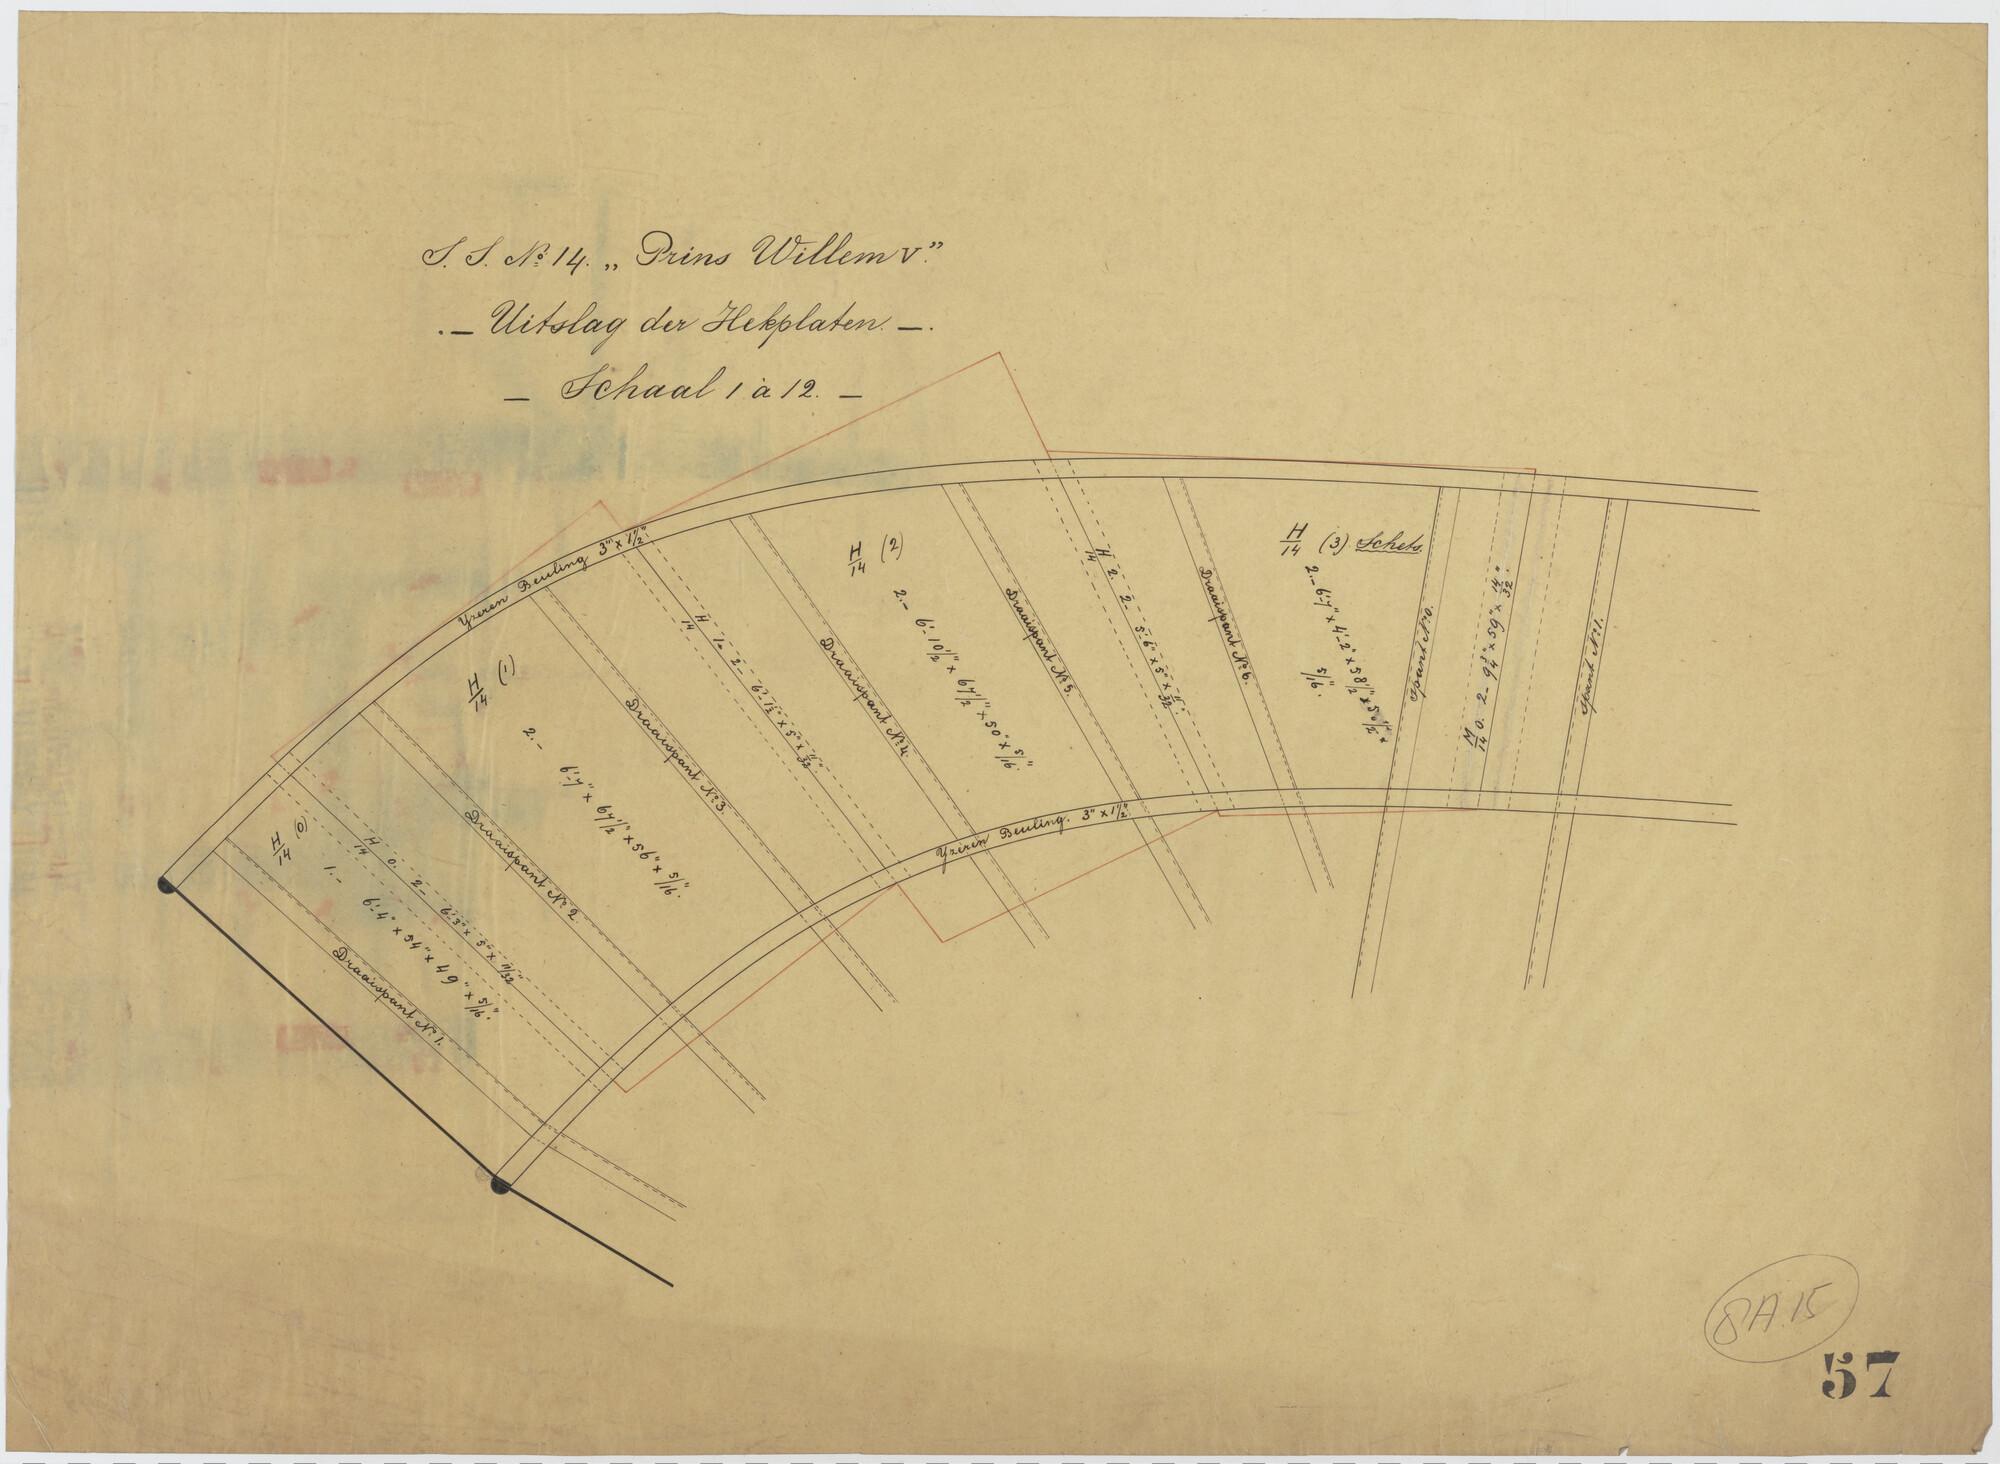 S. S. No 14. „Prins Willem V.”
.— Uitslag der Hekplaten. —.
— Schaal 1 à 12. —
Yzeren Beuling 3" x 1 1/2"
H/14 (0)
1.-
6'-4" x 54" x 49" x 5/16".
Draaispant No 1.
H/14 0. 2- 6'-3" x 5" x 11/32"
Draaispant No 2.
H/14 (1)
2.-
6'-7" x 67 1/2" x 56" x 5/16".
Draaispant No 3.
H/14 1. 2- 6'-1 1/2" x 5" x 11/32".
Draaispant No 4.
H/14 (2)
2.-
6'-10 1/2" x 67 1/2" x 50" x 5/16".
Draaispant No 5.
H/14 2. 2- 5'-6" x 5" x 11/32".
Draaispant No 6.
H/14 (3) Schets.
2.- 6'-7" x 4'-2" x 58 1/2" x 50 1/2" x
5/16".
Spant No 0.
M/14 0. 2- 9 3/4" x 59" x 14/32".
Spant No 1.
Yzeren Beuling. 3" x 1 1/2"
8A.15
57